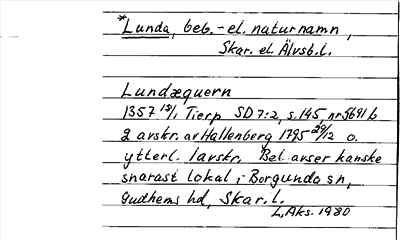 *Lunda, beb.-el. naturnamn,
Skar. el. Älvsb.l.
Lundæquern
1357 12/1 Tierp SD 7:2, s.145, nr 5691 b
2 avskr. av Hallenberg 1795 29/12 o.
ytterl. 1 avskr. Bel. avser kanske
snarast lokal i Borgunda sn,
Gudhems hd, Skar. l.
L. Aks. 1980